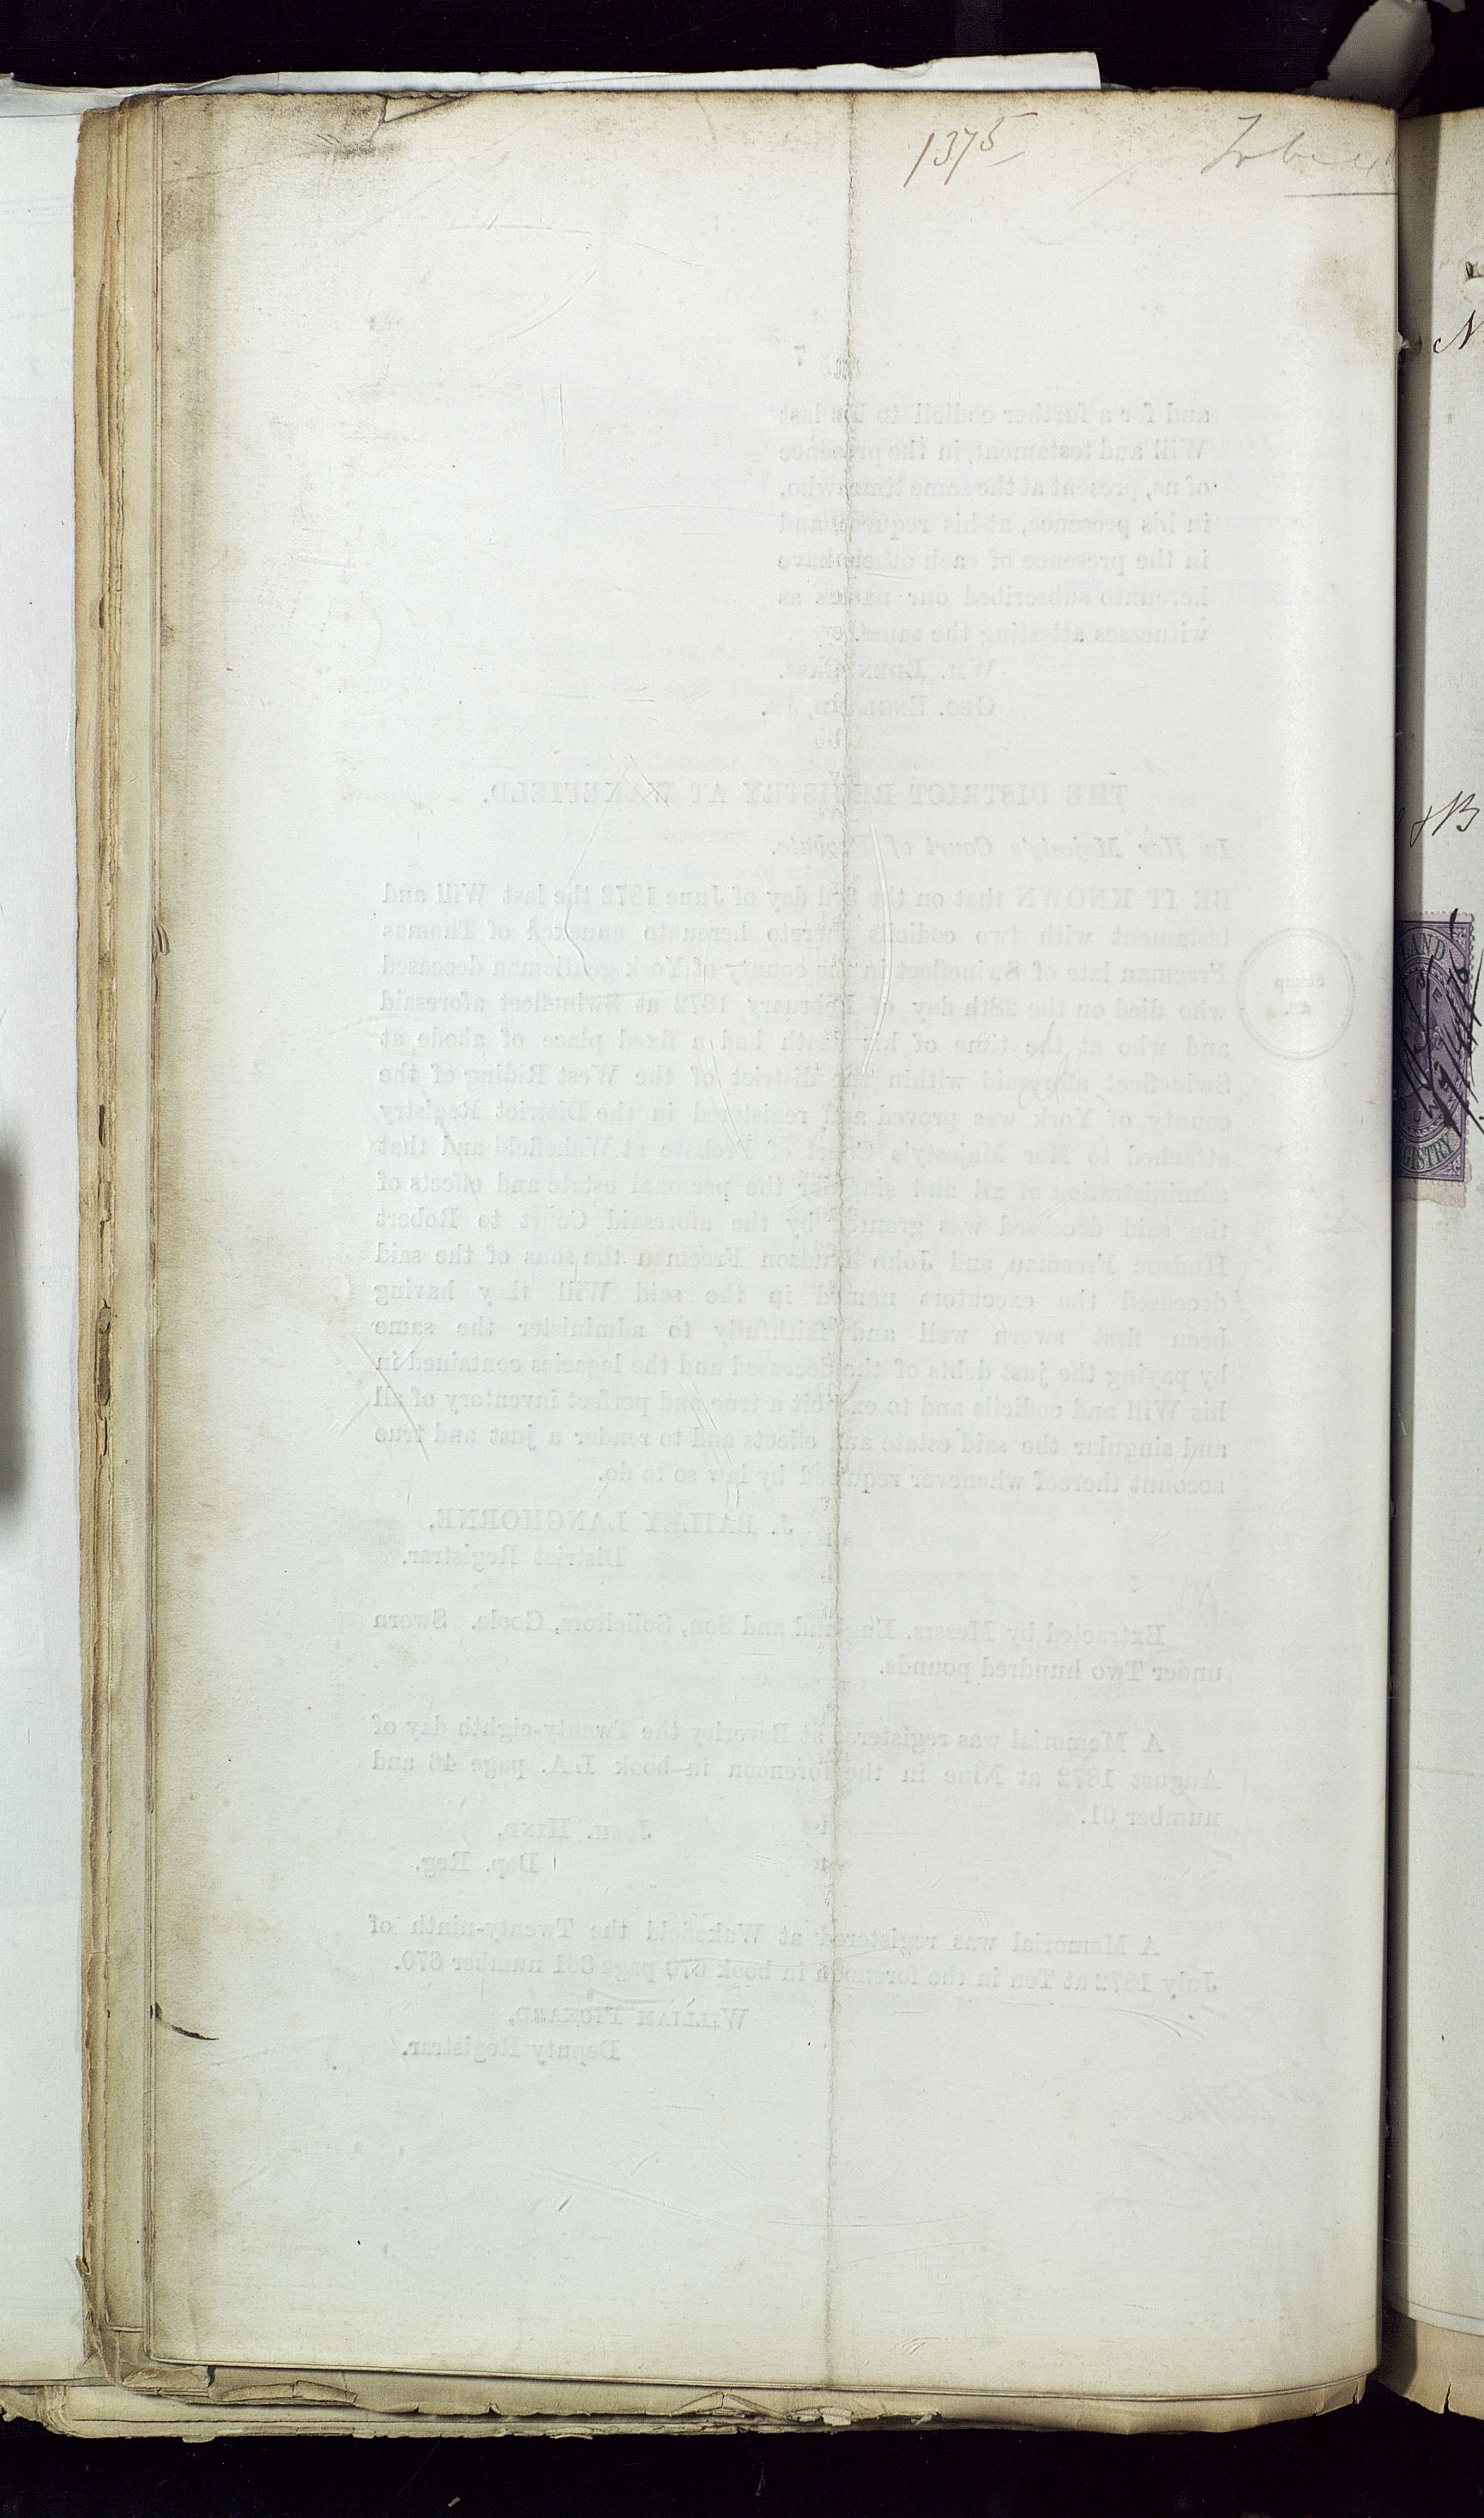 1375
7
and for a further codicil to his last
Will and testament, in the presence
of us, present at the same time, who,
in his presence, at his request, and
in the presence of each other, have
hereunto subscribed our names as
witnesses attesting the same.
WM. EDEN CASS.
GEO. ENGLAND, JR.
THE DISTRICT REGISTRY AT WAKEFIELD.
In Her Majesty's Court of Probate.
BE IT KNOWN that on the 3rd day of June 1872 the last Will and
testament with two codicils thereto hereunto annexed of Thomas
Freeman late of Swinefleet in the county of York gentleman deceased
who died on the 28th day of February 1872 at Swinefleet aforesaid
and who at the time of his death had a fixed place of abode at
Swinefleet aforesaid within the district of the West Riding of the
county of York was proved and registered in the District Registry
attached to Her Majesty's Court of Probate at Wakefield and that
administration of all and singular the personal estate and effects of
the said deceased was granted by the aforesaid Court to Robert
Hudson Freeman and John Hudson Freeman the sons of the said
deceased the executors named in the said Will they having
been first sworn well and faithfully to administer the same
by paying the just debts of the deceased and the legacies contained in
his Will and codicils and to exhibit a true and perfect inventory of all
and singular the said estate and effects and to render a just and true
account thereof whenever required by law so to do.
Stamp
J. BAILEY LANGHORNE,
District Registrar.
Extracted by Messrs. England and Son, Solicitors, Goole. Sworn
under Two hundred pounds.
A Memorial was registered at Beverley the Twenty-eighth day of
August 1872 at Nine in the forenoon in book L.A. page 46 and
number 61.
JOSH. HIND,
Dep. Reg.
A Memorial was registered at Wakefield the Twenty-ninth of
July 1872 at Ten in the forenoon in book 670 page 801 number 670.
WILLIAM PICKARD,
Deputy Registrar.